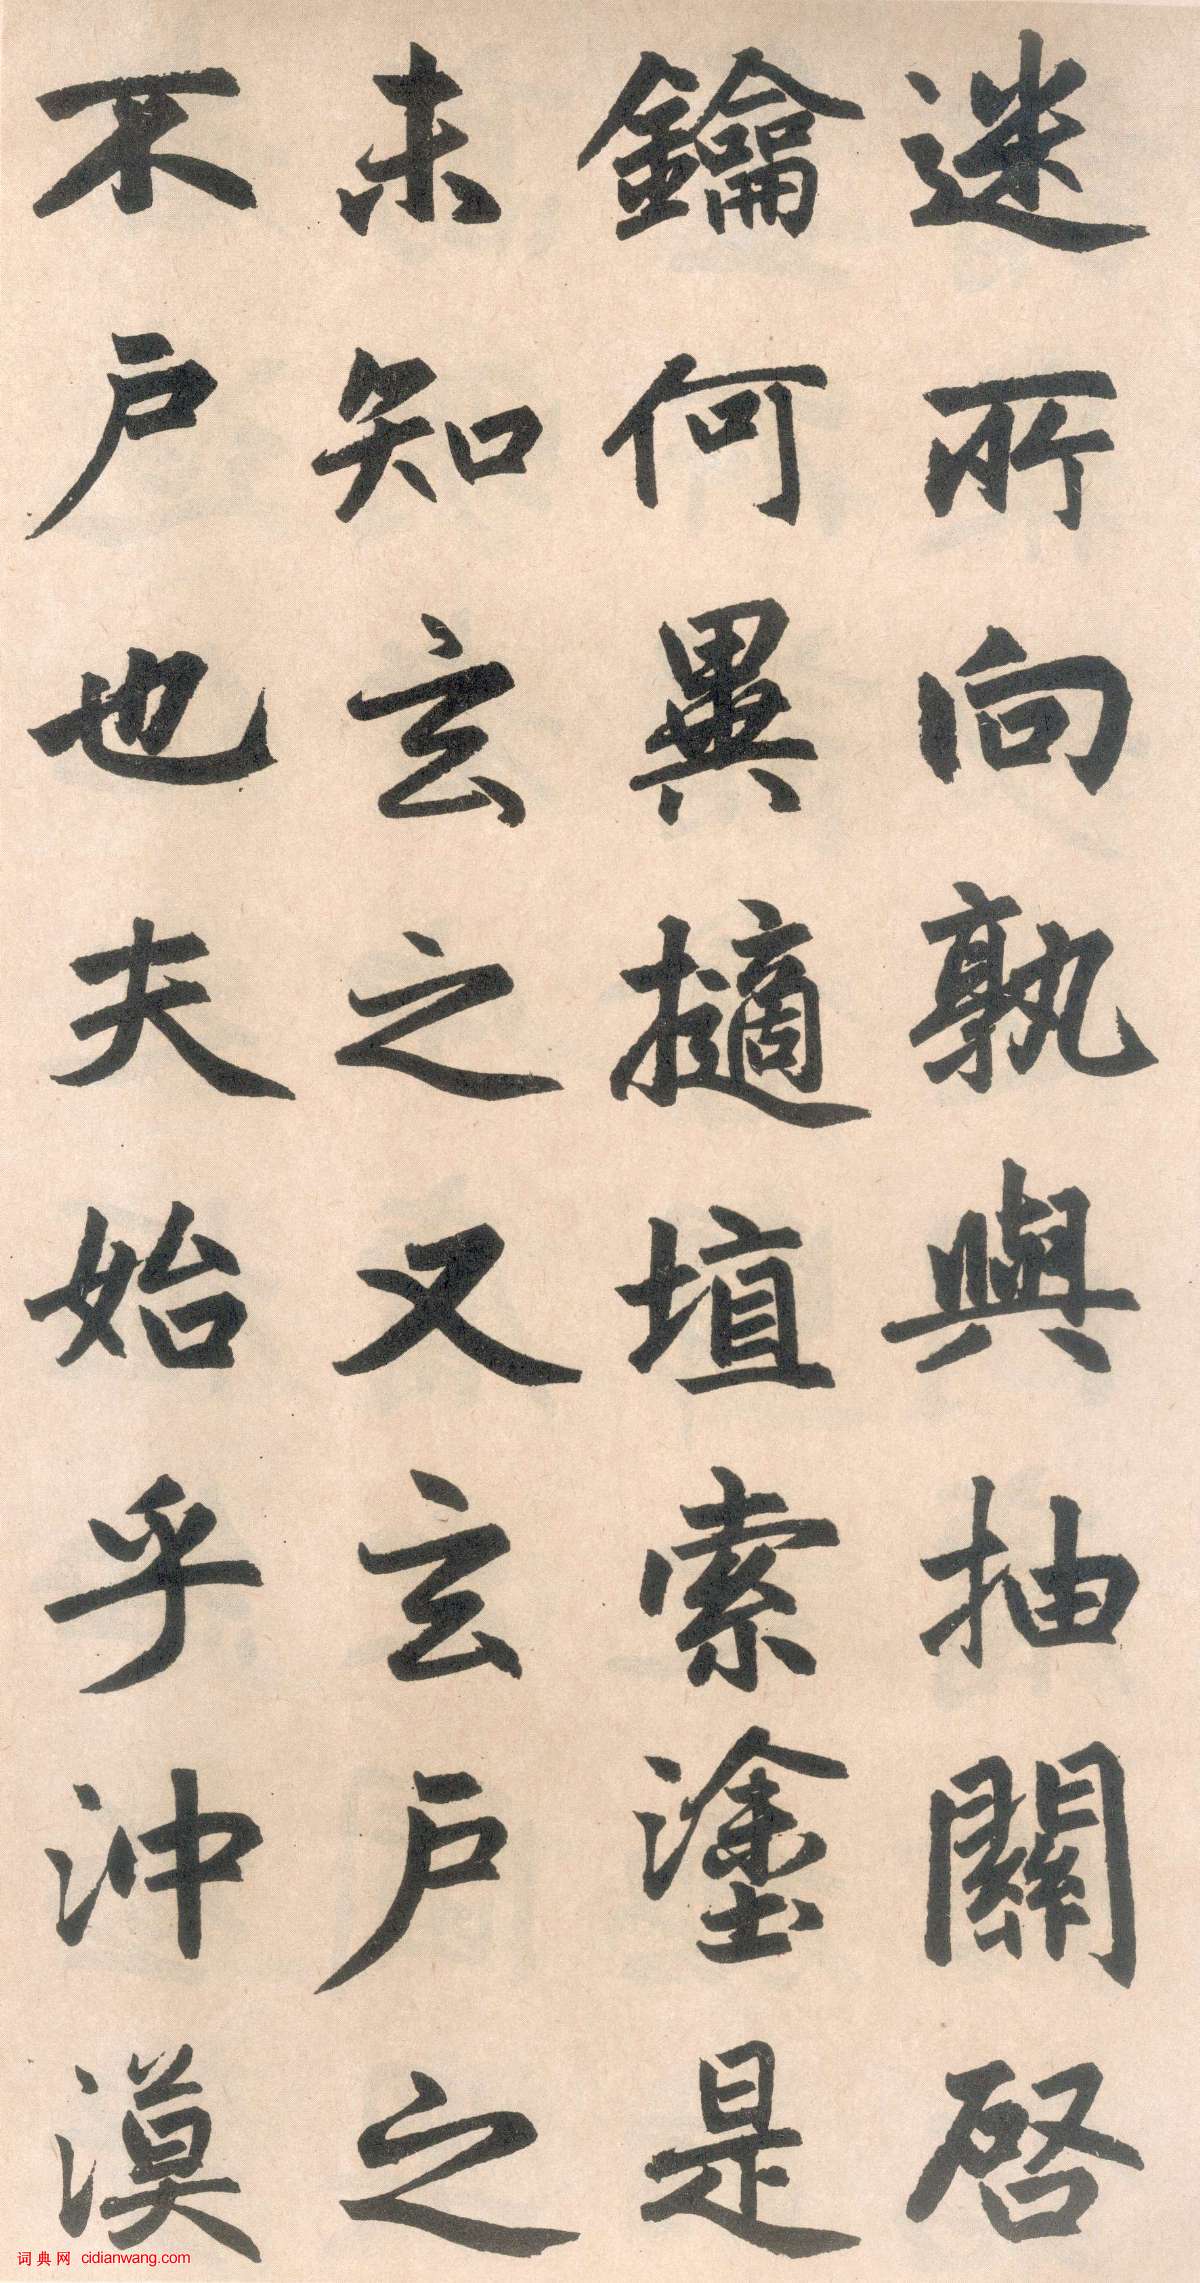 迷所向孰與抽關啓
鑰何異擿埴索塗是
未知玄之又玄戶之
不戶也夫始乎沖漠
词典网 cidianwang.com